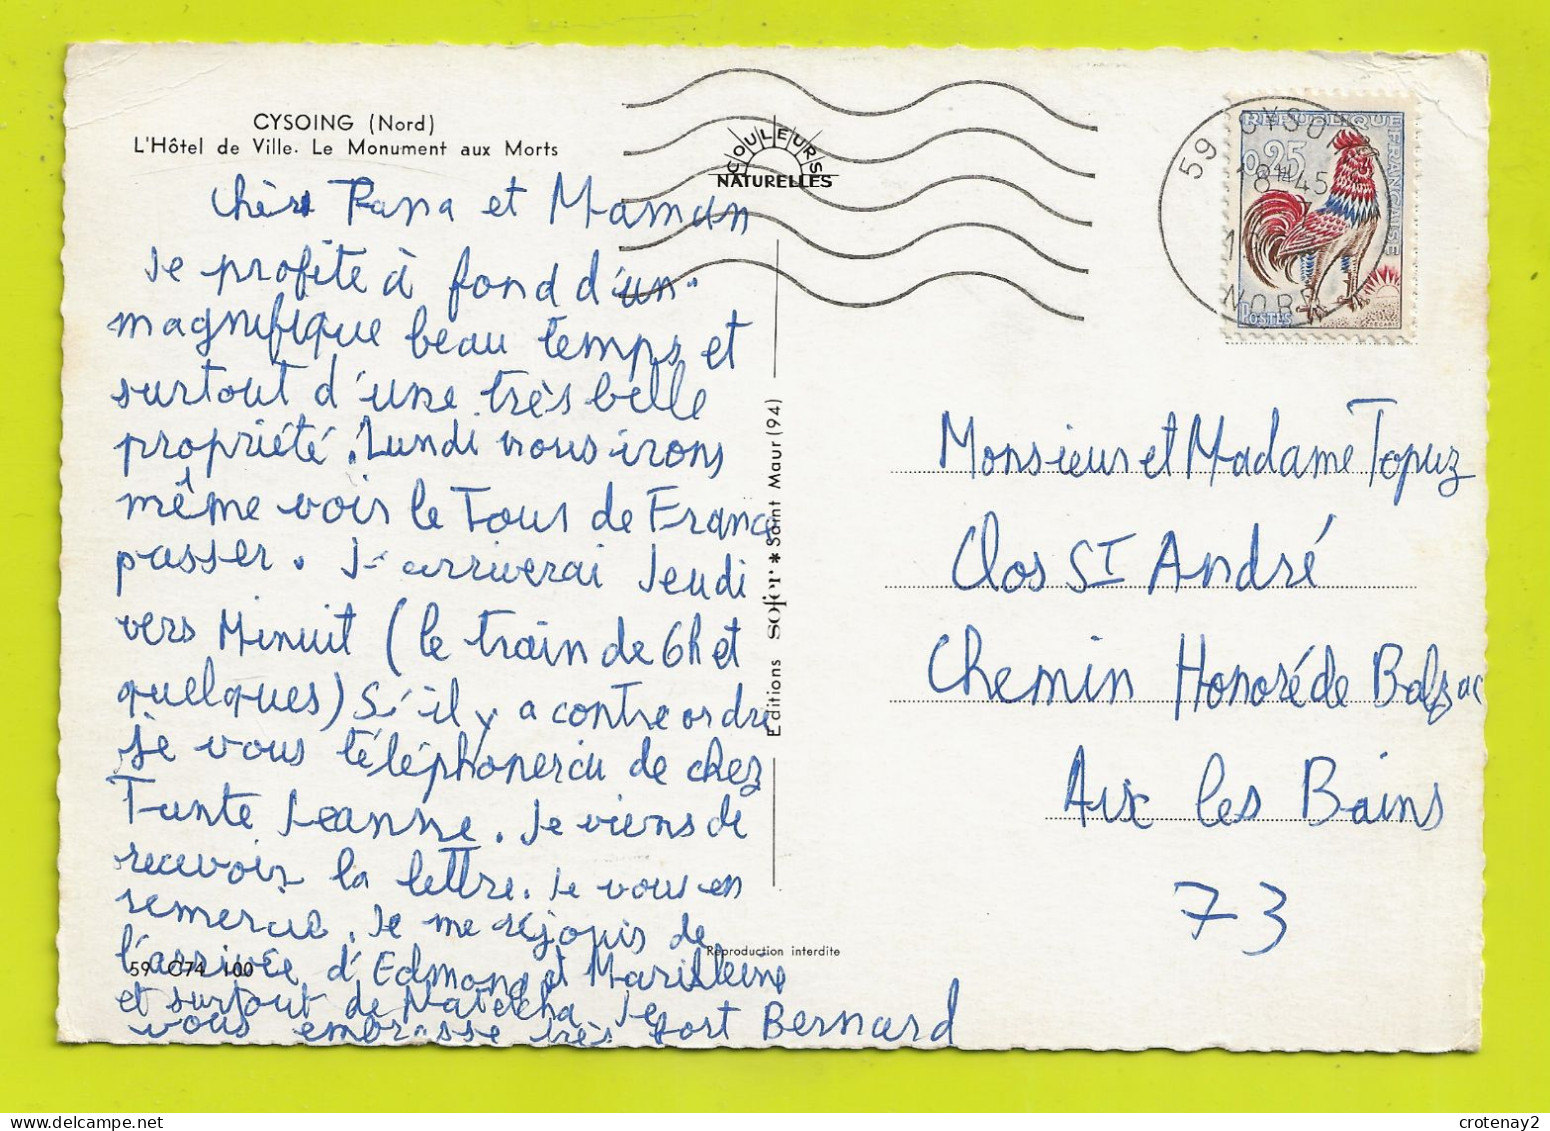 CYSOING (Nord)
L'Hôtel de Ville. Le Monument aux Morts
COULEURS
NATURELLES
59 CYSO
18H45
NORD
REPUBLIQUE
FRANÇAISE
0,25
POSTES
Chers Papa et Maman
Je profite à fond d'un
magnifique beau temps et
surtout d'une très belle
propriété. Lundi nous irons
même voir le Tour de France
passer. J'arriverai Jeudi
vers Minuit (le train de 6h et
quelques) S'il y a contre ordre
je vous téléphonerai de chez
Tante Jeanne. Je viens de
recevoir la lettre. Je vous en
remercie. Je me réjouis de
l'arrivée d'Edmond et Marilleine
et surtout de Natacha Je
vous embrasse très fort Bernard
59 C74 100
Editions sofer * Saint Maur (94)
Reproduction interdite
Monsieur et Madame Topuz
Clos St André
Chemin Honoré de Balzac
Aix les Bains
73
crotenay2